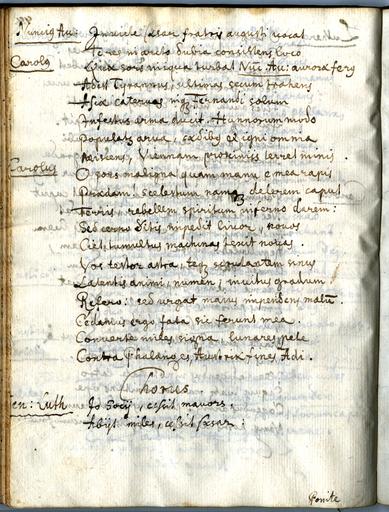 Nuncig Au: Invicte Caesar fratris augusti vocat
Teres in arcto dubia consistens loco
Carolg Quae sors iniqua turbat Nuc Au: aurora ferg
Adest Tyrannus, ultimas secum trahens
Asiae catervas, usq Fernandi solum
Infestus arma ducit. Hunnorum modo
Populatg arva, caedibg et igni omnia
Miscens, Viennam proximis terret minis.
Carolus O sors maligna quam manu e mea rapis
Praedam! Scelestum namq delerem caput
Terris, rebellem spiritum inferno darem:
Sed cerno Ditis, impedit livor, novos
Ciet tumultus machinas tentat novas.
Vos testor astra, teq scrutantem sinus
Latentis animi, numen, invitus gradum
Refero: sed urget maius impendens malu.
Cedamus ergo fata sic ferunt mea.
Converte miles signa, lunares pete
Contra phalanges, Austriae fines adi.
Chorus.
Gen: Luth Jo Socij, cessit mavors,
Abijt miles, cessit Caesar:
Ponite